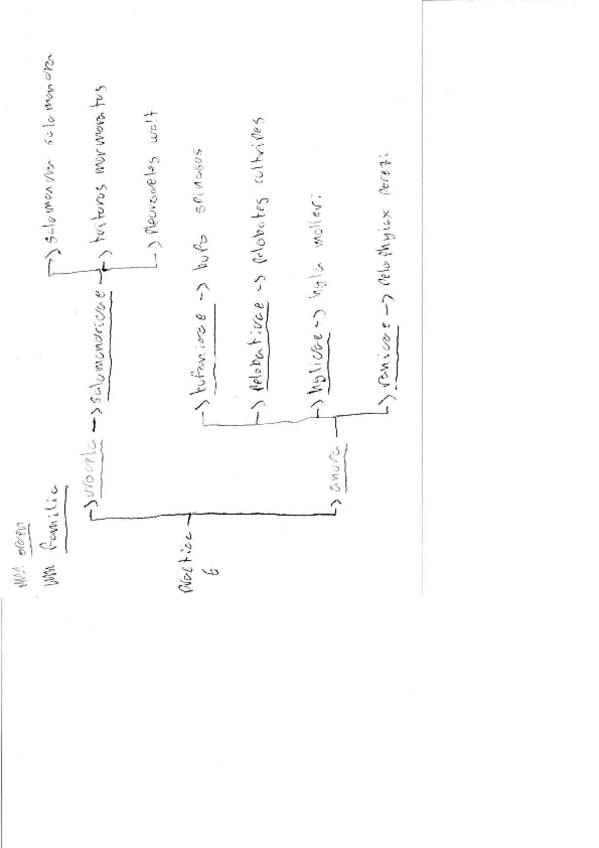 orden
familia
practica
6
urodela -> salamandridae
-> salamandra salamandra
-> triturus marmoratus
-> pleurodeles walt
anura
-> bufonidae -> bufo spinosus
-> pelobatidae -> pelobates cultripes
-> hylidae -> hyla molleri
-> ranidae -> pelophylax perezi